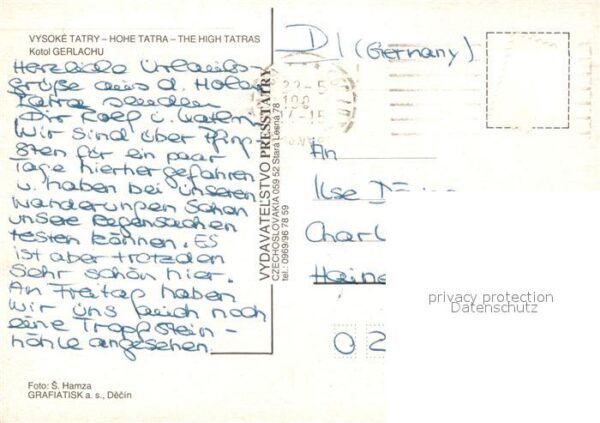 VYSOKÉ TATRY – HOHE TATRA – THE HIGH TATRAS
Kotol GERLACHU
Herzliche Urlaubs-
grüße aus d. Hohen
Tatra senden
Dir Rolf u.
Wir sind über Pfing-
sten für ein paar
Tage hierher gefahren
u. haben bei unseren
Wanderungen schon
unsere Regensachen
testen können. Es
ist aber trotzdem
sehr schön hier.
Am Freitag haben
wir uns gleich noch
eine Tropfstein-
höhle angesehen.
Foto: Š. Hamza
GRAFIATISK a. s., Děčín
VYDAVATEĽSTVO PRESSTATRY
CZECHOSLOVAKIA 059 52 Stará Lesná 78
tel.: 0969/96 78 59
D | (Germany)
22-5
An
Ilse
Charl
Haine
02
privacy protection
Datenschutz